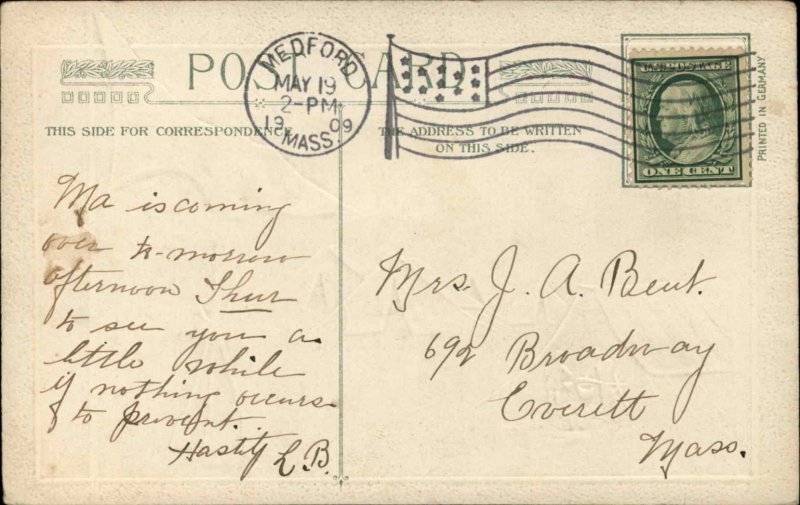 POST CARD
MEDFORD
MAY 19
2-PM
19 09
MASS.
U.S. POSTAGE
ONE CENT
PRINTED IN GERMANY
THIS SIDE FOR CORRESPONDENCE
THE ADDRESS TO BE WRITTEN
ON THIS SIDE.
Ma is coming
over to-morrow
afternoon Thur
to see you a
little while
if nothing occurs
to prevent.
Hastily L.B.
Mrs. J. A. Bent.
692 Broadway
Everett
Mass.